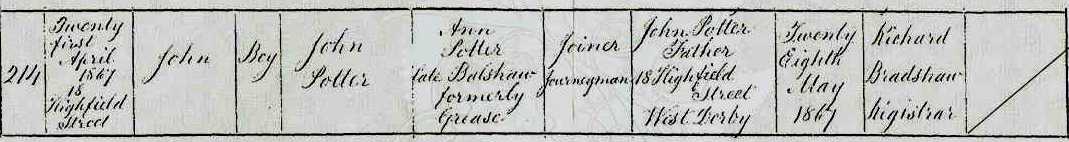 214
Twenty
first
April
1867
18
Highfield
Street
John
Boy
John
Potter
Ann
Potter
late Balshaw
formerly
Grease
Joiner
Journeyman
John Potter
Father
18 Highfield
Street
West Derby
Twenty
Eighth
May
1867
Richard
Bradshaw
Registrar